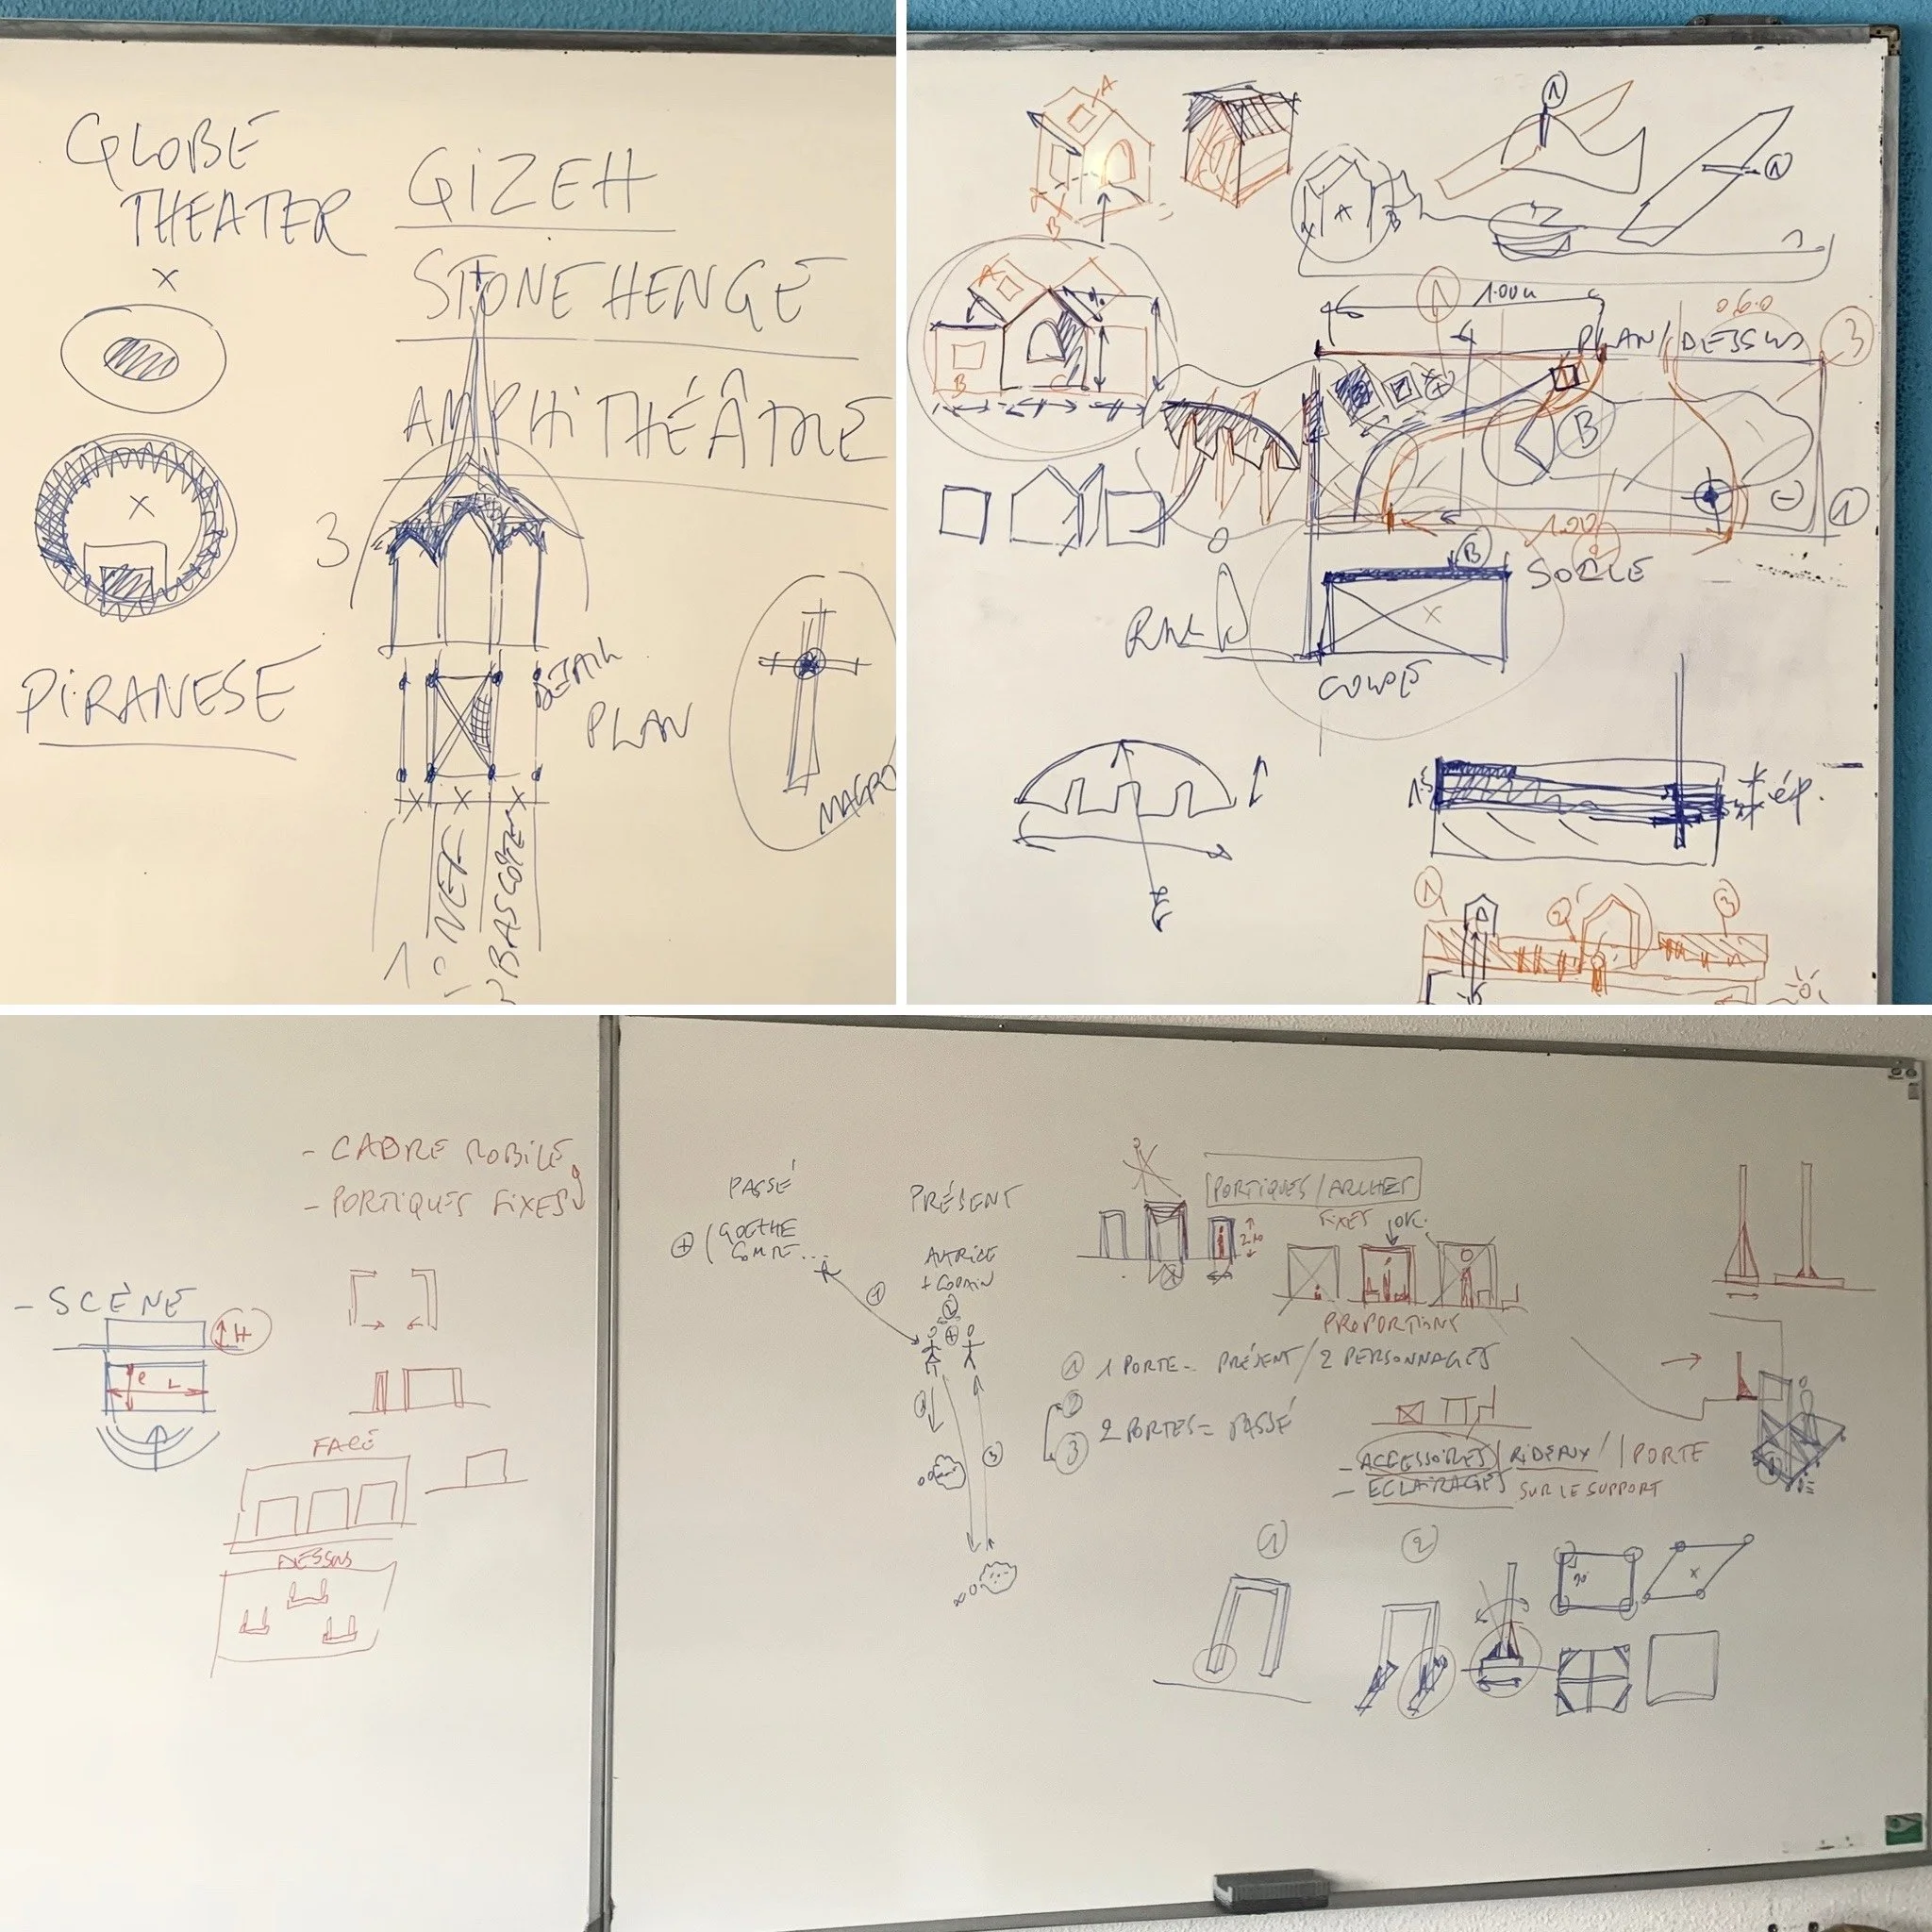 GLOBE
THEATER
GIZEH
STONE HENGE
AMPHITHÉÂTRE
3
PIRANESE
DETAIL
PLAN
MACRO
NEF
BAS CÔTE
1
A
B
1
1
A
B
1
A
B
C
1.00
0.60
PLAN/DESSUS
3
B
1
1.00
B
SOCLE
COUPE
ép.
1
2
3
- CADRE MOBILE
- PORTIQUES FIXES
- SCÈNE
H
e L
FACE
DESSUS
PASSÉ
+ (GOETHE
COMTE...
PRÉSENT
AUTRICE
+ COPAIN
1
2
3
PORTIQUES/ARCHES
FIXES
OK
PROPORTIONS
1 1 PORTE = PRÉSENT / 2 PERSONNAGES
2
3
2 PORTES = PASSÉ
- ACCESSOIRES / RIDEAUX / PORTE
- ECLAIRAGES SUR LE SUPPORT
1
2
90°
X